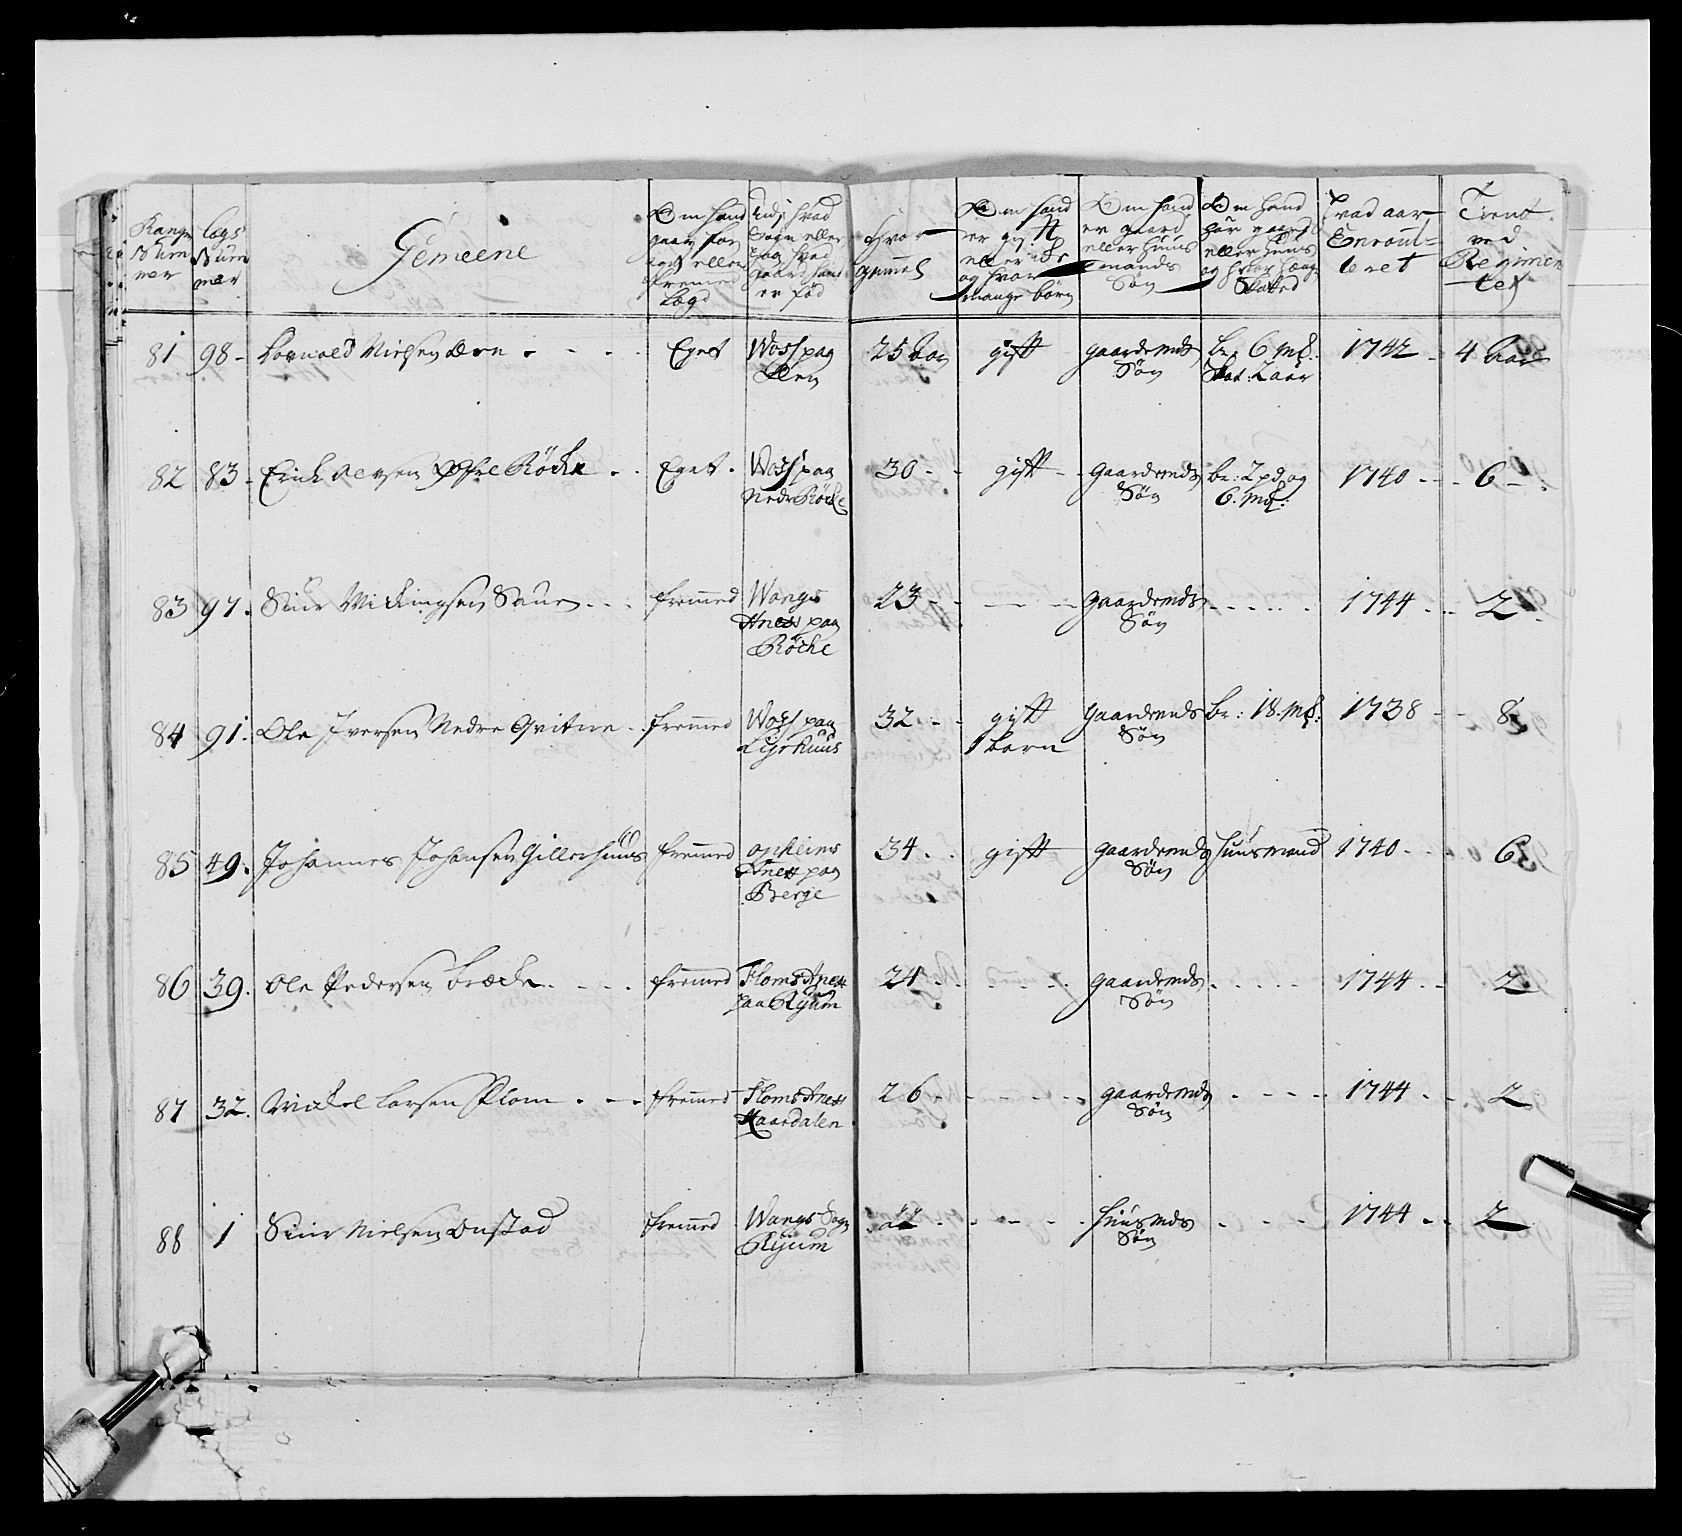 Range Num̄er
Lægs Num̄er
Gemeene
Om hand gaar for eget eller fremmed Lægd
Udj hvad Sogn eller paa hvad gaard hand er fød
Hvor gam̄el
Om hand er gift eller ej og hvor mange børn
Om hand er gaard eller huus mands Søn
Om hand har gaard eller huus og hvor
Hvad aar Enroul= leret
Tient ved Regimentet
81 98 Nielsen Eget Woss paa 25 aar gift gaardmds Søn br: 6 ml: 1742 4 aar
82 83 Erich Røche Eget Woss paa Nedr Røche 30 gift gaardmds Søn br: 2 pd og 6 ml: 1740 6
83 97 Siur Wichingsen Saue frem̄ed Wangs paa Røche 23 gaardmds Søn 1744 2
84 91 Ole Iversen Nedre Qvitne frem̄ed Woss paa 32 gift 1 barn gaardmds Søn br: 18 ml: 1738 8
85 49 Johannes Johansen Gillerhuus frem̄ed opheims Anex paa Berge 34 gift gaardmds Søn huusmand 1740 6
86 39 Ole Pedersen Bræche frem̄ed Floms Anex paa Ryum 24 gaardmds Søn 1744 2
87 32 Michel Larsen Flom frem̄ed Floms Anex Haardalen 26 gaardmds Søn 1744 2
88 1 Siur Nielsen Onstad frem̄ed Wangs Sogn Ryum 22 huusmds Søn 1744 2